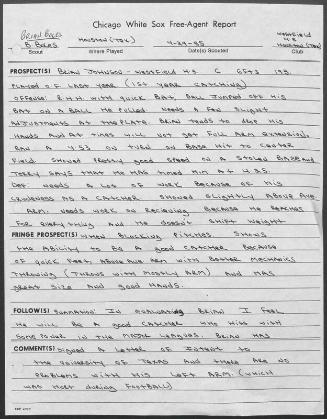 Chicago White Sox Free-Agent Report
BRIAN BOLES
B BOLES HOUSTON (TEX) 4-29-85 WESTFIELD H.S HOUSTON (TEX)
Scout Where Played Date(s) Scouted Club
PROSPECT(S) BRIAN JOHNSON - WESTFIELD HS C 6FT3 195.
PLAYED OF LAST YEAR (1ST YEAR CATCHING)
OFFENSE: R.H.H. WITH QUICK BAT, BALL JUMPED OFF HIS
BAT ON A BALL HE PULLED. NEEDS A FEW SLIGHT
ADJUSTMENTS AT THE PLATE. BRIAN TENDS TO HIS
HANDS AND AT TIMES WILL NOT GET FULL ARM EXTENSION.
RAN A 4.53 ON TURN ON BASE HIT TO CENTER
FIELD. SHOWED PRETTY GOOD SPEED ON A STOLEN BASE AND
TERRY SAYS THAT HE HAS TIMED HIM AT 4.35.
DEF NEEDS A LOT OF WORK BECAUSE OF HIS
AS A CATCHER. SHOWED SLIGHTLY ABOVE AVE
ARM. NEEDS WORK ON RECEIVING BECAUSE HE REACHES
FOR EVERYTHING AND HE DOESN'T SHIFT WEIGHT
FRINGE PROSPECT(S) WHEN BLOCKING PITCHES. SHOWS
THE ABILITY TO BE A GOOD CATCHER BECAUSE
OF QUICK FEET, ABOVE AVE ARM WITH BETTER MECHANICS
THROWING (THROWS WITH MOSTLY ARM) AND HAS
GREAT SIZE AND GOOD HANDS.
FOLLOW(S) SUMMATION IN EVALUATING BRIAN I FEEL
HE WILL BE A GOOD CATCHER WHO HITS WITH
SOME POWER IN THE MAJOR LEAGUES. BRIAN HAS
COMMENT(S) SIGNED A LETTER OF INTENT TO
THE UNIVERSITY OF TEXAS AND THERE ARE NO
PROBLEMS WITH HIS LEFT ARM. (WHICH
WAS HURT DURING FOOTBALL)